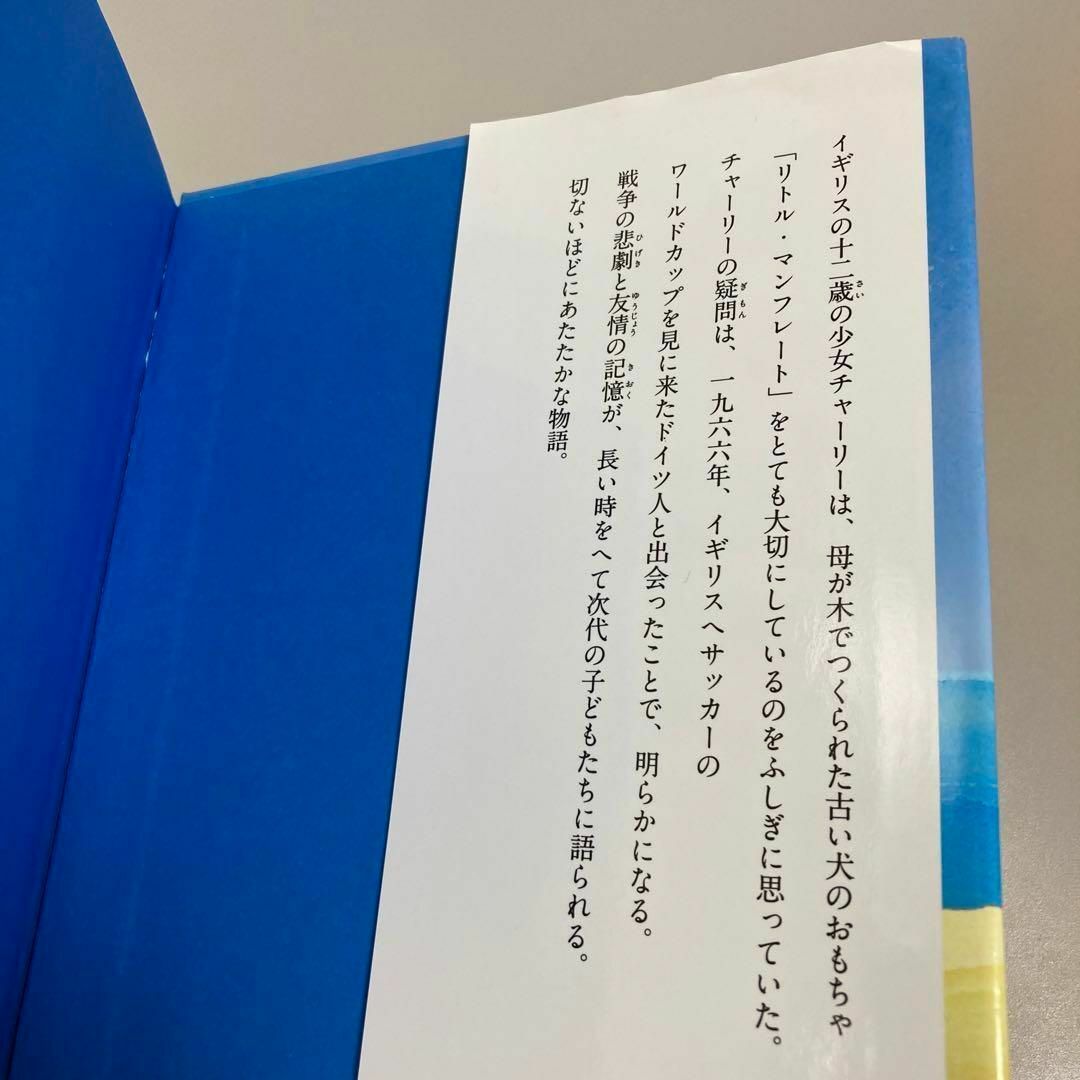 イギリスの十二歳の少女チャーリーは、母が木でつくられた古い犬のおもちゃ
「リトル・マンフレート」をとても大切にしているのをふしぎに思っていた。
チャーリーの疑問は、一九六六年、イギリスへサッカーの
ワールドカップを見に来たドイツ人と出会ったことで、明らかになる。
戦争の悲劇と友情の記憶が、長い時をへて次代の子どもたちに語られる。
切ないほどにあたたかな物語。